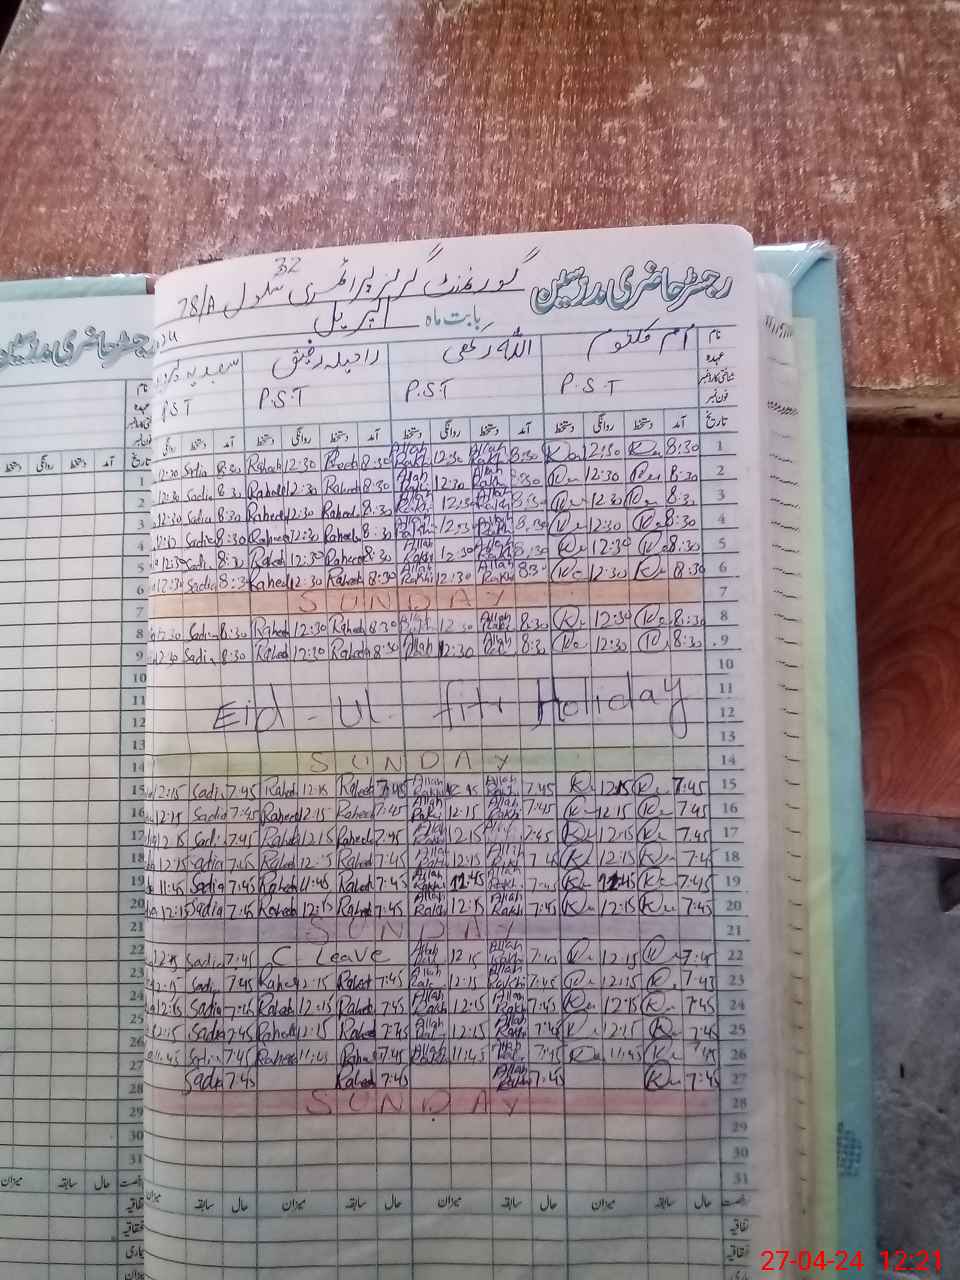 رجسٹر حاضری مدرسین گورنمنٹ گرلز پرائمری سکول 32
78/A
بابت ماہ اپریل
نام ام کلثوم اللہ رکھی راحیلہ رفیق سعدیہ
عہدہ P.S.T P.S.T P.S.T P.S.T
شناختی کارڈ نمبر
فون نمبر
تاریخ آمد دستخط روانگی دستخط آمد دستخط روانگی دستخط آمد دستخط روانگی دستخط آمد دستخط روانگی
1 8:30 12:30 8:30 Allah Rakhi 12:30 Allah Rakhi 8:30 Raheela 12:30 Raheela 8:30 Sadia 12:30
2 8:30 12:30 8:30 Allah Rakhi 12:30 Allah Rakhi 8:30 Raheela 12:30 Raheela 8:30 Sadia 12:30
3 8:30 12:30 8:30 Allah Rakhi 12:30 Allah Rakhi 8:30 Raheela 12:30 Raheela 8:30 Sadia 12:30
4 8:30 12:30 8:30 Allah Rakhi 12:30 Allah Rakhi 8:30 Raheela 12:30 Raheela 8:30 Sadia 12:30
5 8:30 12:30 8:30 Allah Rakhi 12:30 Allah Rakhi 8:30 Raheela 12:30 Raheela 8:30 Sadia 12:30
6 8:30 12:30 8:30 Allah Rakhi 12:30 Allah Rakhi 8:30 Raheela 12:30 Raheela 8:30 Sadia 12:30
7 SUNDAY
8 8:30 12:30 8:30 Allah Rakhi 12:30 Allah Rakhi 8:30 Raheela 12:30 Raheela 8:30 Sadia 12:30
9 8:30 12:30 8:30 Allah Rakhi 12:30 Allah 8:30 Raheela 12:30 Raheela 8:30 Sadia 12:30
10
11
Eid-Ul-fitr Holiday
12
13
14 SUNDAY
15 7:45 12:15 7:45 Allah Rakhi Allah Rakhi 7:45 Raheela 12:15 Raheela 7:45 Sadia 12:15
16 7:45 12:15 7:45 Allah Rakhi 12:15 Allah Rakhi 7:45 Raheela 12:15 Raheela 7:45 Sadia 12:15
17 7:45 12:15 7:45 12:15 Allah Rakhi 7:45 Raheela 12:15 Raheela 7:45 Sadia 12:15
18 7:45 12:15 7:45 Allah Rakhi 12:15 Allah Rakhi 7:45 Raheela 12:15 Raheela 7:45 Sadia 12:15
19 7:45 7:45 Allah Rakhi Allah Rakhi 7:45 Raheela 11:45 Raheela 7:45 Sadia 11:45
20 7:45 12:15 7:45 Allah Rakhi 12:15 Allah Rakhi 7:45 Raheela 12:15 Raheela 7:45 Sadia 12:15
21 SUNDAY
22 7:45 12:15 7:45 Allah Rakhi 12:15 Allah Rakhi C Leave 7:45 Sadia 12:15
23 7:45 12:15 7:45 Allah Rakhi 12:15 Allah Rakhi 7:45 Raheela 12:15 Raheela 7:45 Sadia 12:15
24 7:45 12:15 7:45 Allah Rakhi 12:15 Allah Rakhi 7:45 Raheela 12:15 Raheela 7:45 Sadia 12:15
25 7:45 12:15 7:45 Allah Rakhi 12:15 Allah Rakhi 7:45 Raheela 12:15 Raheela 7:45 Sadia 12:15
26 7:45 11:45 7:45 Allah Rakhi 11:45 Allah Rakhi 7:45 Raheela 11:45 Raheela 7:45 Sadia 11:45
27 7:45 7:45 Allah Rakhi 7:45 Raheela 7:45 Sadia
28 SUNDAY
29
30
31
رخصت حال سابقہ میزان حال سابقہ میزان حال سابقہ میزان حال سابقہ میزان
اتفاقیہ
بیماری
میزان
رجسٹر حاضری مدرسین
نام
عہدہ
فون نمبر
تاریخ آمد دستخط روانگی دستخط
1
2
3
4
5
6
7
8
9
10
11
12
13
14
15
16
17
18
19
20
21
22
23
24
25
26
27
28
29
30
31
رخصت حال سابقہ میزان
اتفاقیہ
بیماری
میزان
27-04-24 12:21